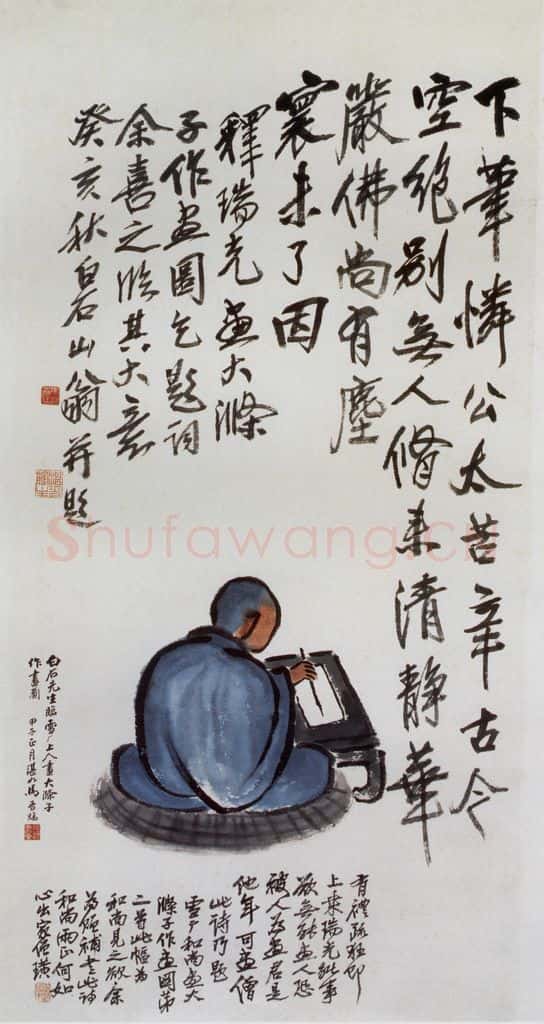 下筆憐公太苦辛古今
空絕別無人脩來清靜華
嚴佛尚有塵
寰未了因
釋瑞光畫大滌
子作畫圖乞題詞
余喜之臨其大意
癸亥秋白石山翁并題
白石先生臨雪广上人畫大滌子
作畫圖 甲子正月湛如馬
有禮疏狂即
上乘瑞光事
欲無能畫人恐
被人為畫君是
他年可畫僧
此詩乃題
雪广和尚畫大
滌子作畫圖第
二首此幅為
和尚見之欲余
為補書此詩
和尚雨正何如
心出家僧璜
Shufawang.cn